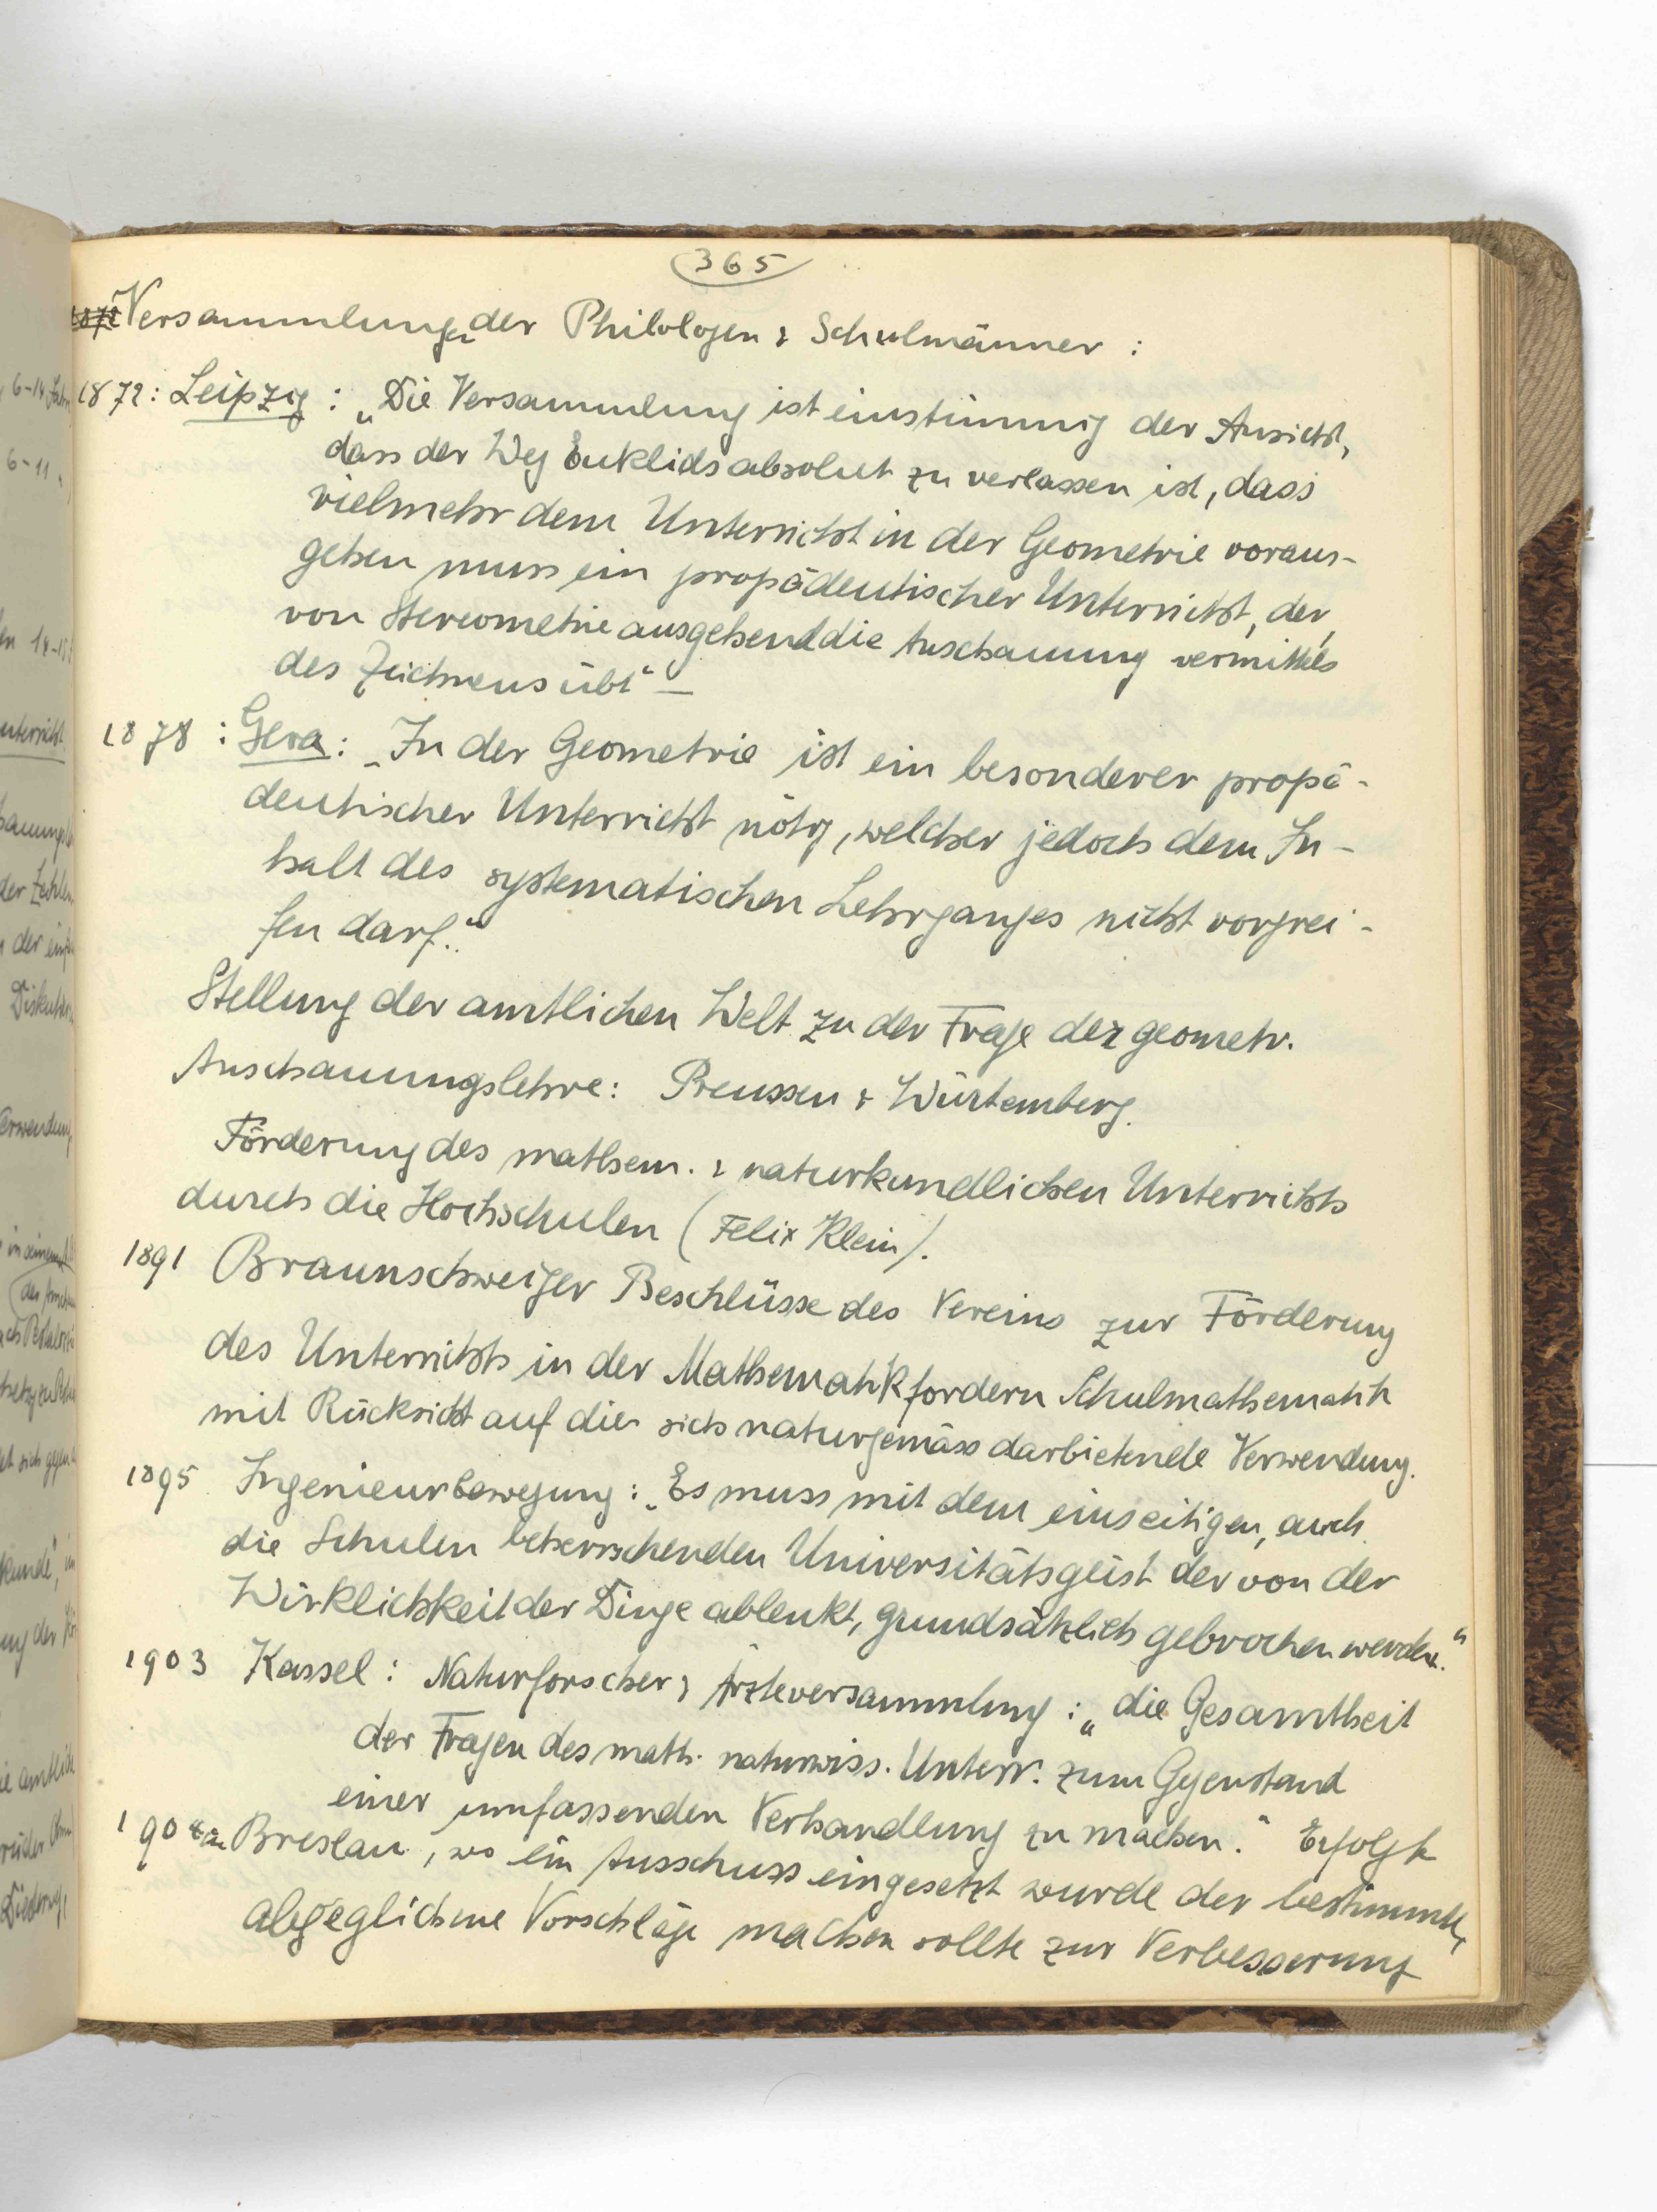 365
1872 Versammlungen der Philologen & Schulmänner :
1872 : Leipzig : „Die Versammlung ist einstimmig der Ansicht,
dass der Weg Euklids absolut zu verlassen ist, dass
vielmehr dem Unterricht in der Geometrie voraus-
gehen muss ein propädeutischer Unterricht, der,
von Stereometrie ausgehend die Anschauung vermittels
des Zeichnens übt" –
1878 : Gera : „In der Geometrie ist ein besonderer propä-
deutischer Unterricht nötig, welcher jedoch dem In-
halt des systematischen Lehrganges nicht vorgrei-
fen darf."
Stellung der amtlichen Welt zu der Frage der geometr.
Anschauungslehre : Preussen & Würtemberg.
Förderung des mathem. & naturkundlichen Unterrichts
durch die Hochschulen (Felix Klein).
1891 Braunschweiger Beschlüsse des Vereins zur Förderung
des Unterrichts in der Mathematik fordern Schulmathematik
mit Rücksicht auf die sich naturgemäss darbietende Verwendung.
1895 Ingenieurbewegung : „Es muss mit dem einseitigen, auch
die Schulen beherrschenden Universitätsgeist der von der
Wirklichkeit der Dinge ablenkt, grundsätzlich gebrochen werden."
1903 Kassel : Naturforscher & Ärzteversammlung : „die Gesamtheit
der Fragen des math. naturwiss. Unterr. zum Gegenstand
einer umfassenden Verhandlung zu machen." Erfolgte
1904 in Breslau, wo ein Ausschuss eingesetzt wurde der bestimmte,
abgeglichene Vorschläge machen sollte zur Verbesserung